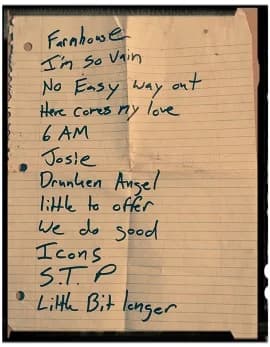 Farmhouse
I'm So Vain
No Easy way out
Here comes my love
6 AM
Josie
Drunken Angel
little to offer
We do good
Icons
S.T.P
Little Bit longer